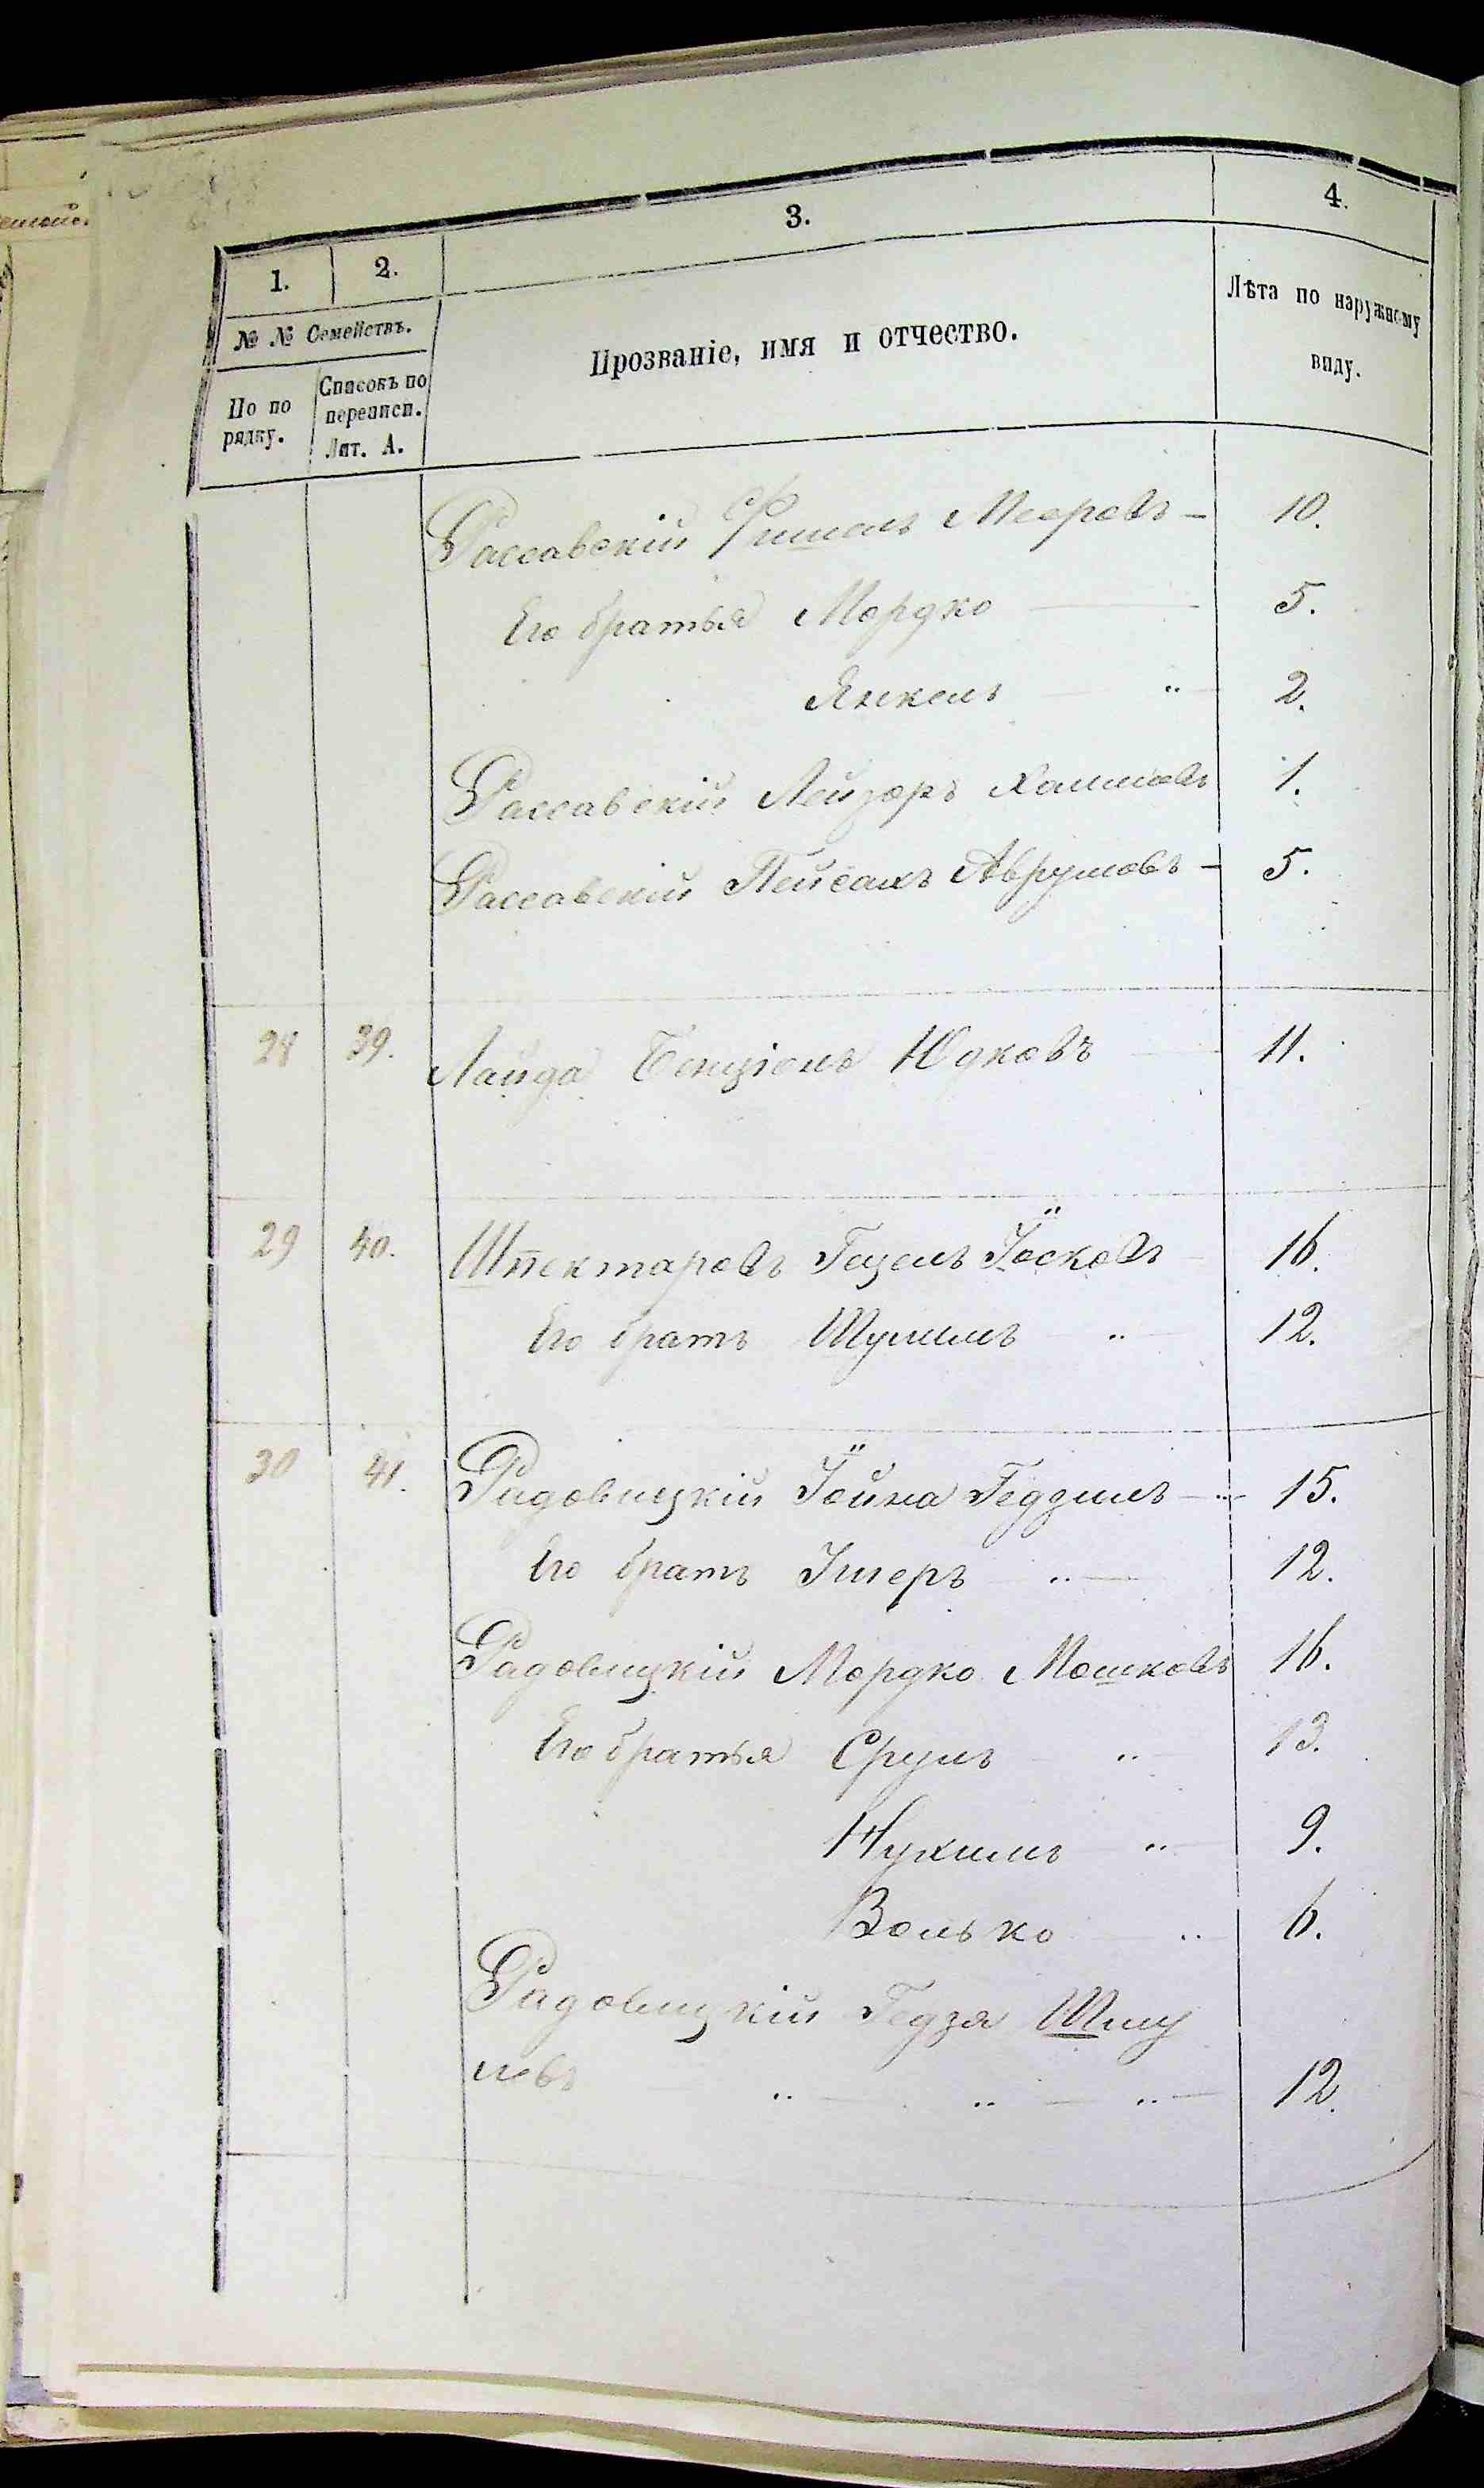 1. 2. 3. 4.
№ № Семействъ.
По по рядку.
Списокъ по переписи. Лит. А.
Прозваніе, имя и отчество.
Лѣта по наружному виду.
Рассавскій Фишель Мееровъ - 10.
Его братья Мордко 5.
Янкель 2.
Рассавскій Лейзоръ Хаимовъ 1.
Рассавскій Пейсахъ Аврумовъ - 5.
28 39. Лайда Бенціонъ Юдковъ 11.
29 40. Шпектаровъ Гецель Іосковъ 16.
Его братъ Шулимъ 12.
30 41. Радовицкій Іойна 15.
Его братъ 12.
Радовицкій Мордко Мошковъ 16.
Его братья Сруль 13.
Нухимъ 9.
Волько 6.
Радовицкій Гедзя Шму
левъ 12.